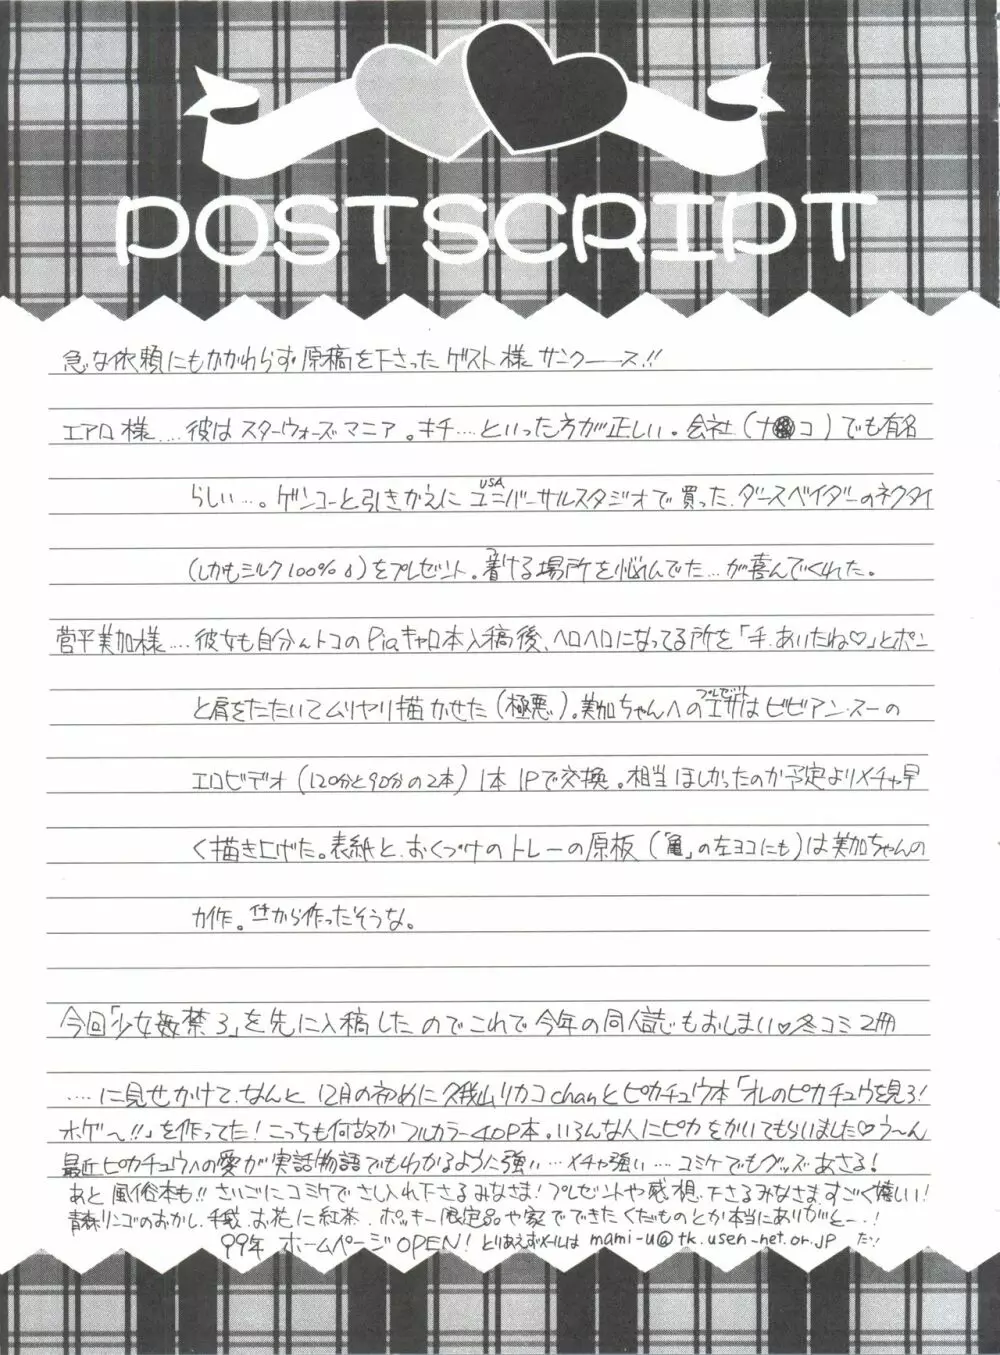 POSTSCRIPT
急な依頼にもかかわらず原稿を下さったゲスト様サンクーース!!
エアロ様....彼はスターウォーズマニア。キチ....といった方が正しい。会社(ナ コ)でも有名
らしい....。ゲンコーと引きかえにUSAユニバーサルスタジオで買ったダースベイダーのネクタイ
(しかもミルク100%)をプレゼント。着ける場所を悩んでた...が喜んでくれた。
菅平美加様....彼女も自分んトコのPiaキャロ本入稿後、ヘロヘロになってる所を「手、あいたね♡」とポン
と肩をたたいてムリヤリ描かせた(極悪)。美加ちゃんへのエサ(プレゼント)はビビアン・スーの
エロビデオ(120分と90分の2本)1本1Pで交換。相当ほしかったのか予定よりメチャ早
く描き上げた。表紙と、おくづけのトレーの原板(「亀」の左ヨコにも)は美加ちゃんの
力作。から作ったそうな。
今回「少女姦禁3」を先に入稿したのでこれで今年の同人誌もおしまい♡冬コミ2冊
....に見せかけて、なんと12月の初めに久我山リカコchanとピカチュウ本「オレのピカチュウを見ろ!
ホゲ〜!!」を作ってた!こっちも何故かフルカラー40P本。いろんな人にピカをかいてもらいました♡う〜ん
最近ピカチュウへの愛が実話物語でもわかるように強い...メチャ強い...コミケでもグッズあさる!
あと風俗本も!!さいごにコミケでさし入れ下さるみなさま!プレゼントや感想下さるみなさますごく嬉しい!
青森リンゴのおかし、手紙、お花に紅茶、ポッキー限定品や家でできたくだものとか本当にありがとー!
99年 ホームページOPEN!とりあえずメールは mami-u@tk.usen-net.or.jp だッ!